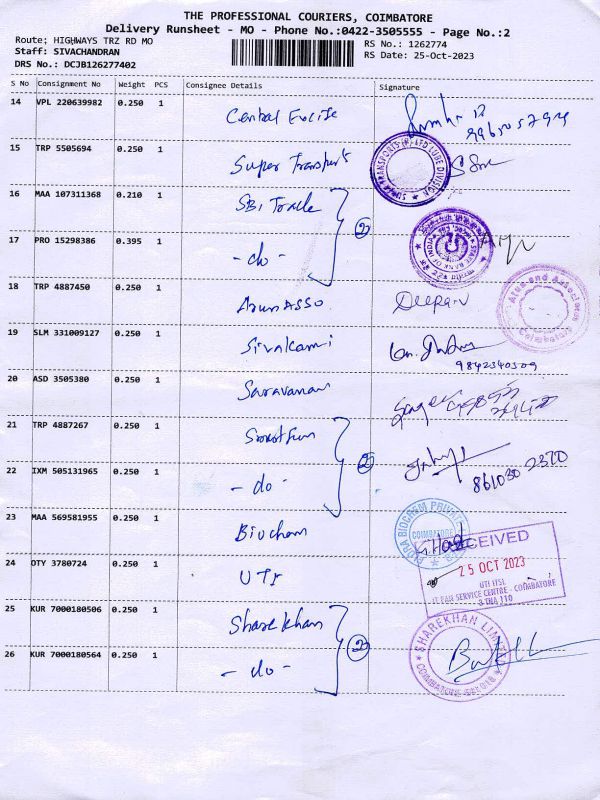 THE PROFESSIONAL COURIERS, COIMBATORE
Delivery Runsheet - MO - Phone No.:0422-3505555 - Page No.:2
Route; HIGHWAYS TRZ RD MO
RS No.: 1262774
Staff: SIVACHANDRAN
RS Date: 25-Oct-2023
DRS No.: DCJB126277402
S No Consignment No Weight PCS Consignee Details Signature
14 VPL 220639982 0.250 1 Central Excise
15 TRP 5505694 0.250 1 Super Transport
16 MAA 107311368 0.210 1 SBI Trade
②
17 PRO 15298386 0.395 1 - do -
STATE BANK OF INDIA
18 TRP 4887450 0.250 1 Arun ASSO. Deepan
19 SLM 331009127 0.250 1 Sivakami
9842340509
20 ASD 3505380 0.250 1 Saravanan
21 TRP 4887267 0.250 1
②
22 IXM 505131965 0.250 1 - do - 861030 2370
23 MAA 569581955 0.250 1 Biochem
COIMBATORE
RECEIVED
24 OTY 3780724 0.250 1 UTI
25 OCT 2023
UTI ITSL
PAN SERVICE CENTRE - COIMBATORE
25 KUR 7000180506 0.250 1 Sharekhan
SHAREKHAN LIMITED
②
26 KUR 7000180564 0.250 1 - do -